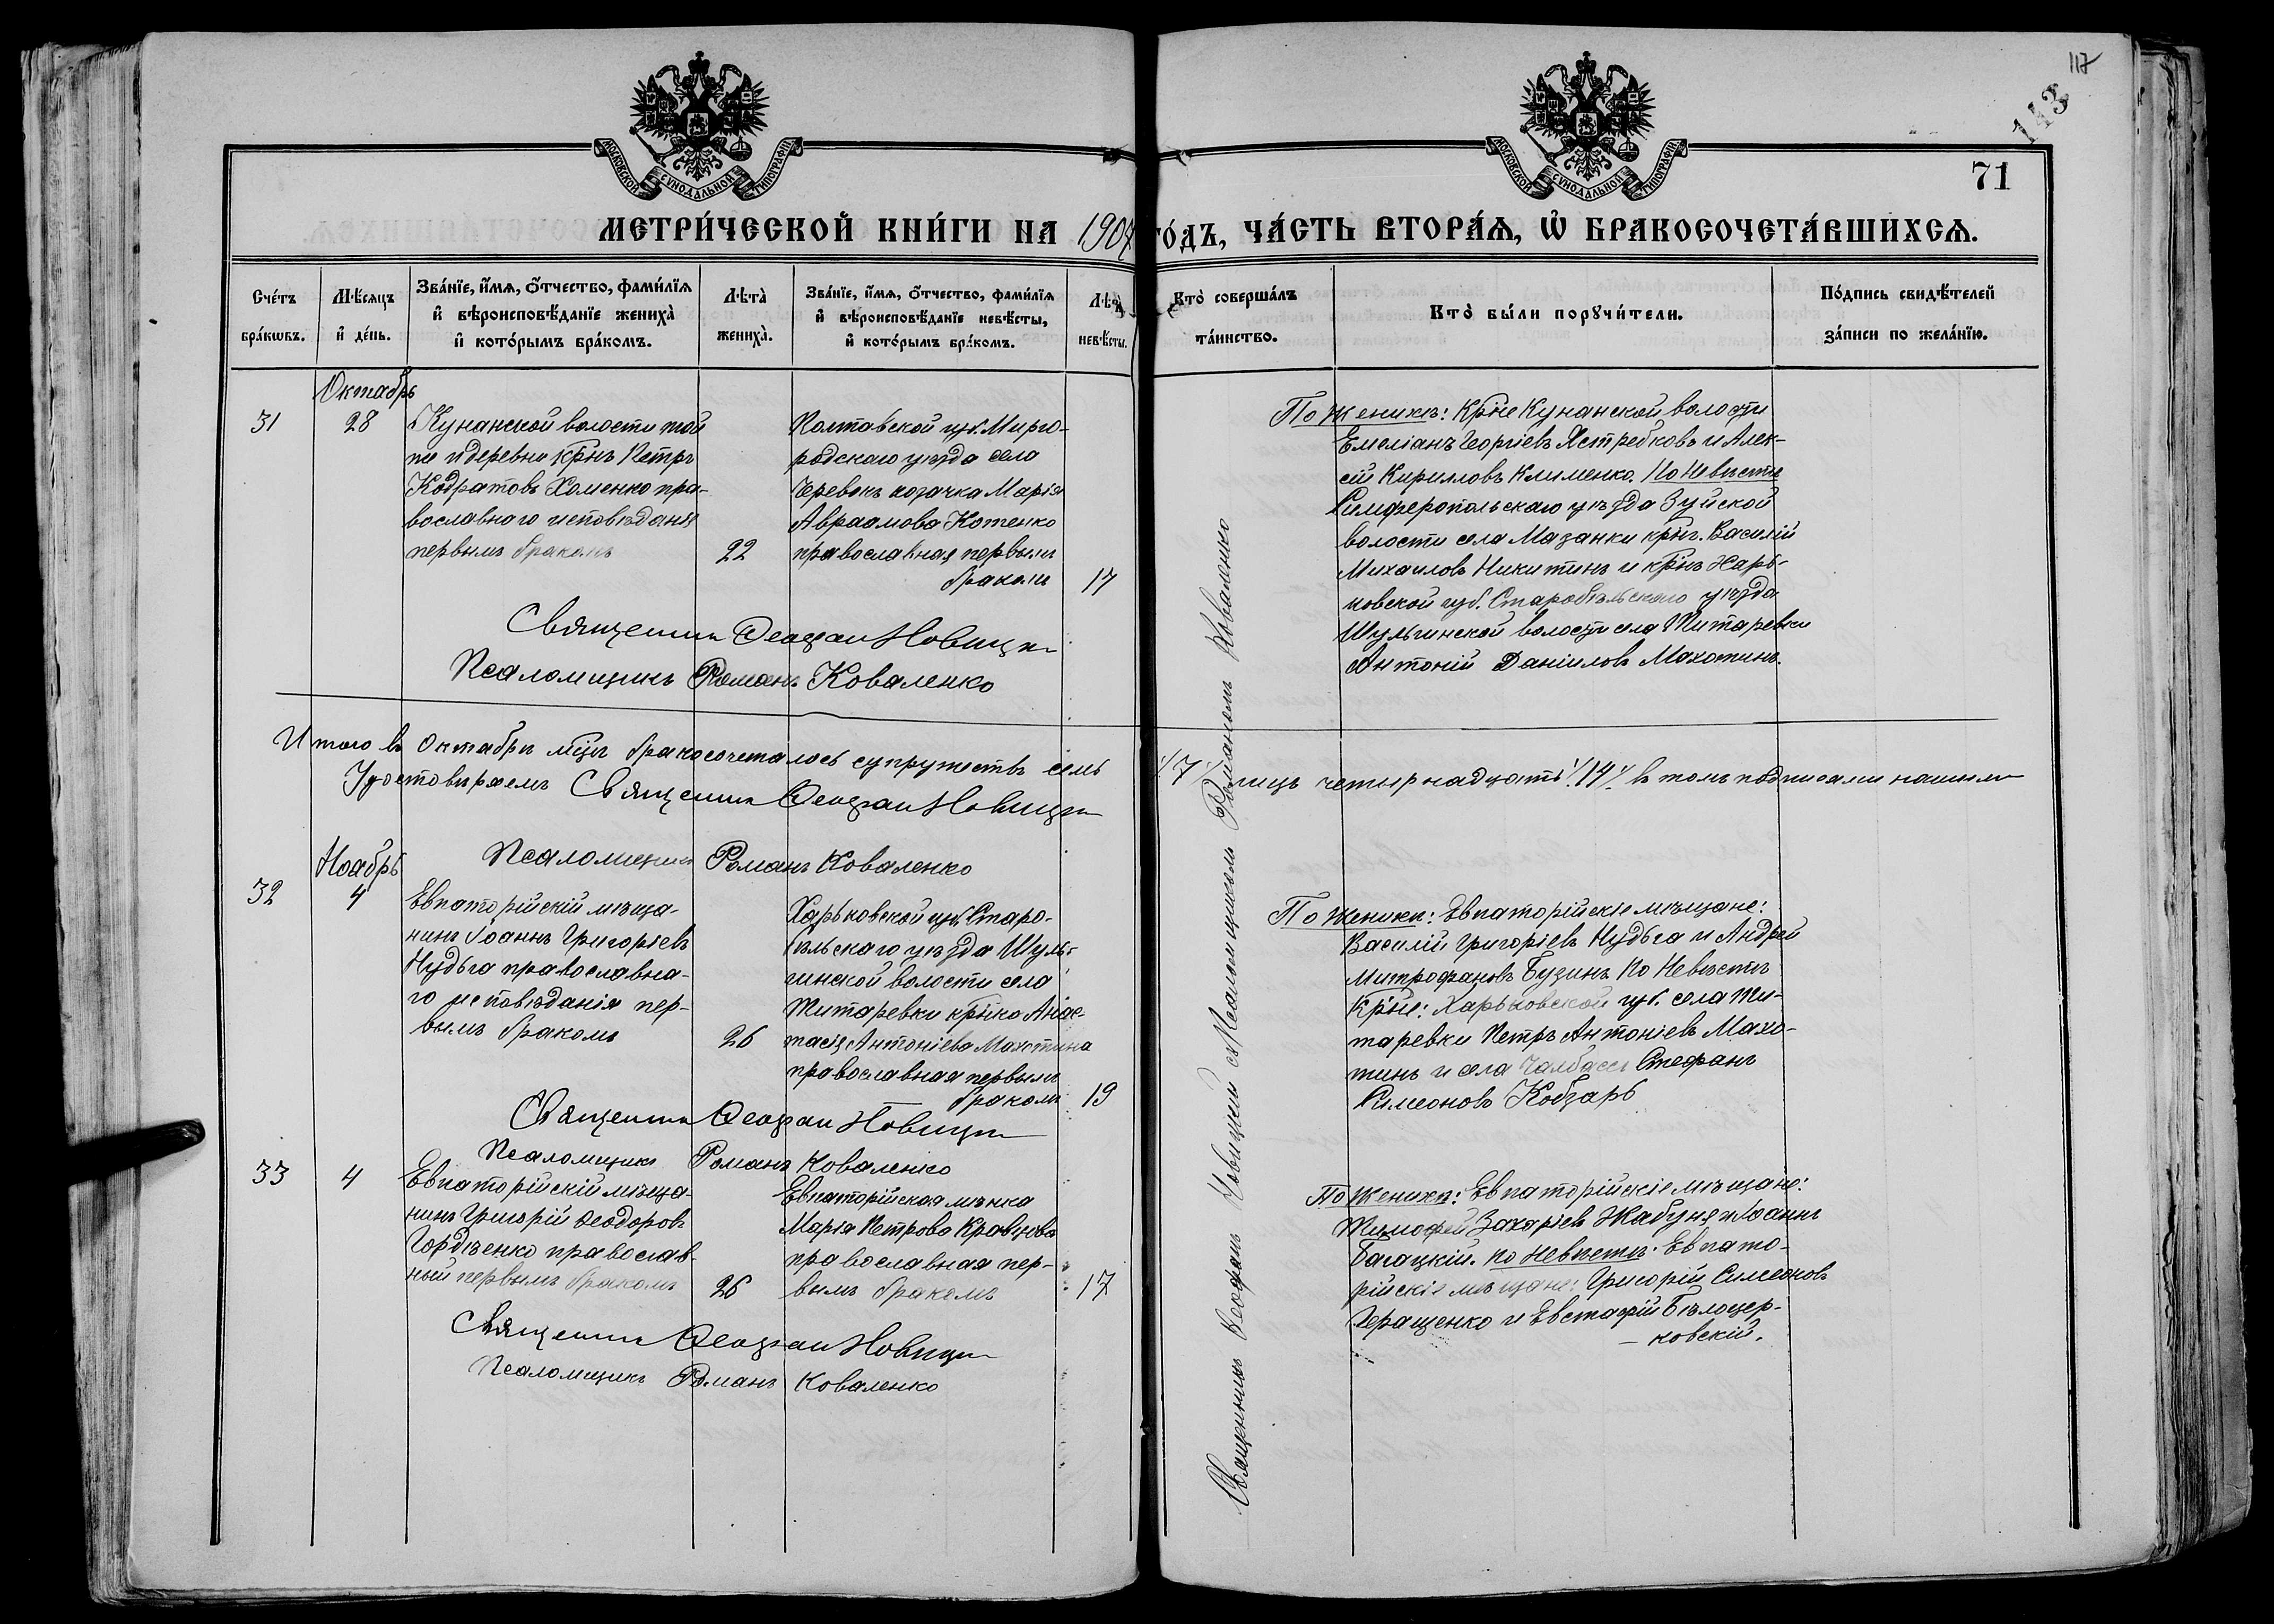 117
143
МОСКОВСКОЙ СѴНОДАЛЬНОЙ ТИПОГРАФІИ
МОСКОВСКОЙ СѴНОДАЛЬНОЙ ТИПОГРАФІИ
71
МЕТРИ́ЧЕСКОЙ КНИ́ГИ НА 1907 ГО́ДЪ, ЧА́СТЬ ВТОРА́Я, Ѡ БРАКОСОЧЕТА́ВШИХСЯ.
Сче́тъ
бра́кѡвъ.
Мѣ́сяцъ
и де́нь.
Зва́нїе, и́мя, о́тчество, фами́лїя
и вѣроисповѣ́данїе жениха̀
и кото́рымъ бра́комъ.
Лѣта̀
жениха̀.
Зва́нїе, и́мя, о́тчество, фами́лїя
и вѣроисповѣ́данїе невѣ́сты,
и кото́рымъ бра́комъ.
Лѣта̀
невѣ́сты.
Кто̀ соверша́лъ
та́инство.
Кто̀ бы́ли порꙋчи́тели.
По́дпись свидѣ́телей
за́писи по жела́нїю.
Октябрь
31
28
Кунанской волости той
же и деревни крнъ Петръ
Кодратовъ Хоменко пра-
вославнаго исповѣданія
первымъ бракомъ
22
Полтавской губ. Мирго-
родскаго уѣзда села
Черевокъ козачка Марія
Авраамова Котенко
православная первымъ
бракомъ
17
По Женихѣ: Крне Кунанской волости
Емеліанъ Георгіевъ Ястребковъ и Алек-
сій Кирилловъ Клименко. По Невѣстѣ
Симферопольскаго уѣзда Зуйской
волости села Мазанки крнъ Василій
Михаиловъ Никитинъ и крнъ Харь-
ковской губ. Старобѣльскаго уѣзда
Шульгинской волости села Титаревки
Антоній Даніиловъ Махотинъ.
Священникъ Ѳеофанъ Новицкій
Псаломщикъ Романъ Коваленко
Итого въ Октябрѣ мцѣ бракосочеталось супружествъ семь /7/ лицъ четырнадцать /14/ въ томъ подписами нашими
Удостовѣряемъ Священникъ Ѳеофанъ Новицкій
Псаломщикъ Романъ Коваленко
Ноябрь
32
4
Евпаторійскій мѣща-
нинъ Іоаннъ Григоріевъ
Нудьга православна-
го исповѣданія пер-
вымъ бракомъ
26
Харьковской губ. Старо-
бѣльскаго уѣзда Шуль-
гинской волости села
Титаревки крнка Анас-
тасія Антоніева Махотина
православная первымъ
бракомъ
19
По Женихѣ: Евпаторійскіе мѣщане:
Василій Григоріевъ Нудьга и Андрей
Митрофановъ Бузинъ По Невѣстѣ
Крне: Харьковской губ. села Ти-
таревки Петръ Антоніевъ Махо-
тинъ и села Чалбасы Стефанъ
Симеоновъ Кобзарь
Священникъ Ѳеофанъ Новицкій
Псаломщикъ Романъ Коваленко
33
4
Евпаторійскій мѣща-
нинъ Григорій Ѳеодоровъ
Гордѣенко православ-
ный первымъ бракомъ
26
Евпаторійская мѣнка
Марія Петрова Кравцова
православная пер-
вымъ бракомъ
17
По Женихѣ: Евпаторійскіе мѣщане:
Тимофей Захаріевъ Жабуня и Іоаннъ
Багацкій. По Невѣстѣ: Евпато-
рійскіе мѣщане: Григорій Симеоновъ
Геращенко и Евстафій Бѣлоцер-
ковскій.
Священникъ Ѳеофанъ Новицкій
Псаломщикъ Романъ Коваленко
Священникъ Ѳеофанъ Новицкій съ Псаломщикомъ Романомъ Коваленко